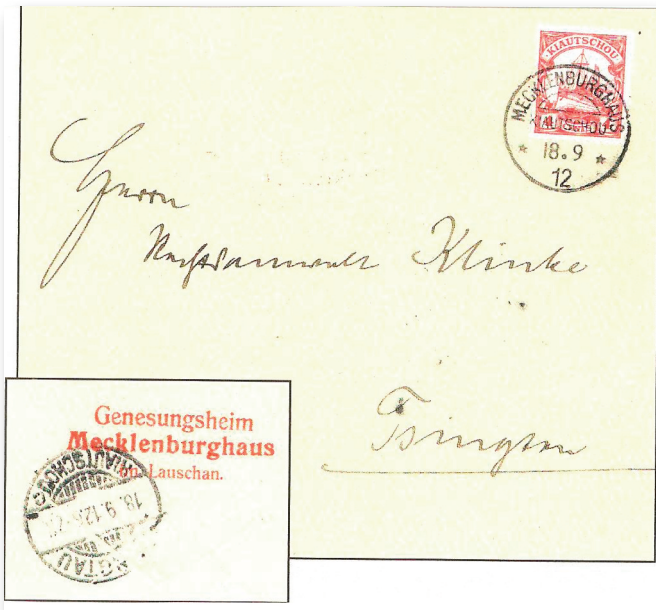 KIAUTSCHOU
MECKLENBURGHAUS
KIAUTSCHOU
* 18.9 *
12
Herrn
Rechtsanwalt Klinke
Tsingtau
Genesungsheim
Mecklenburghaus
Lauschan.
KIAUTSCHOU
18.9.12